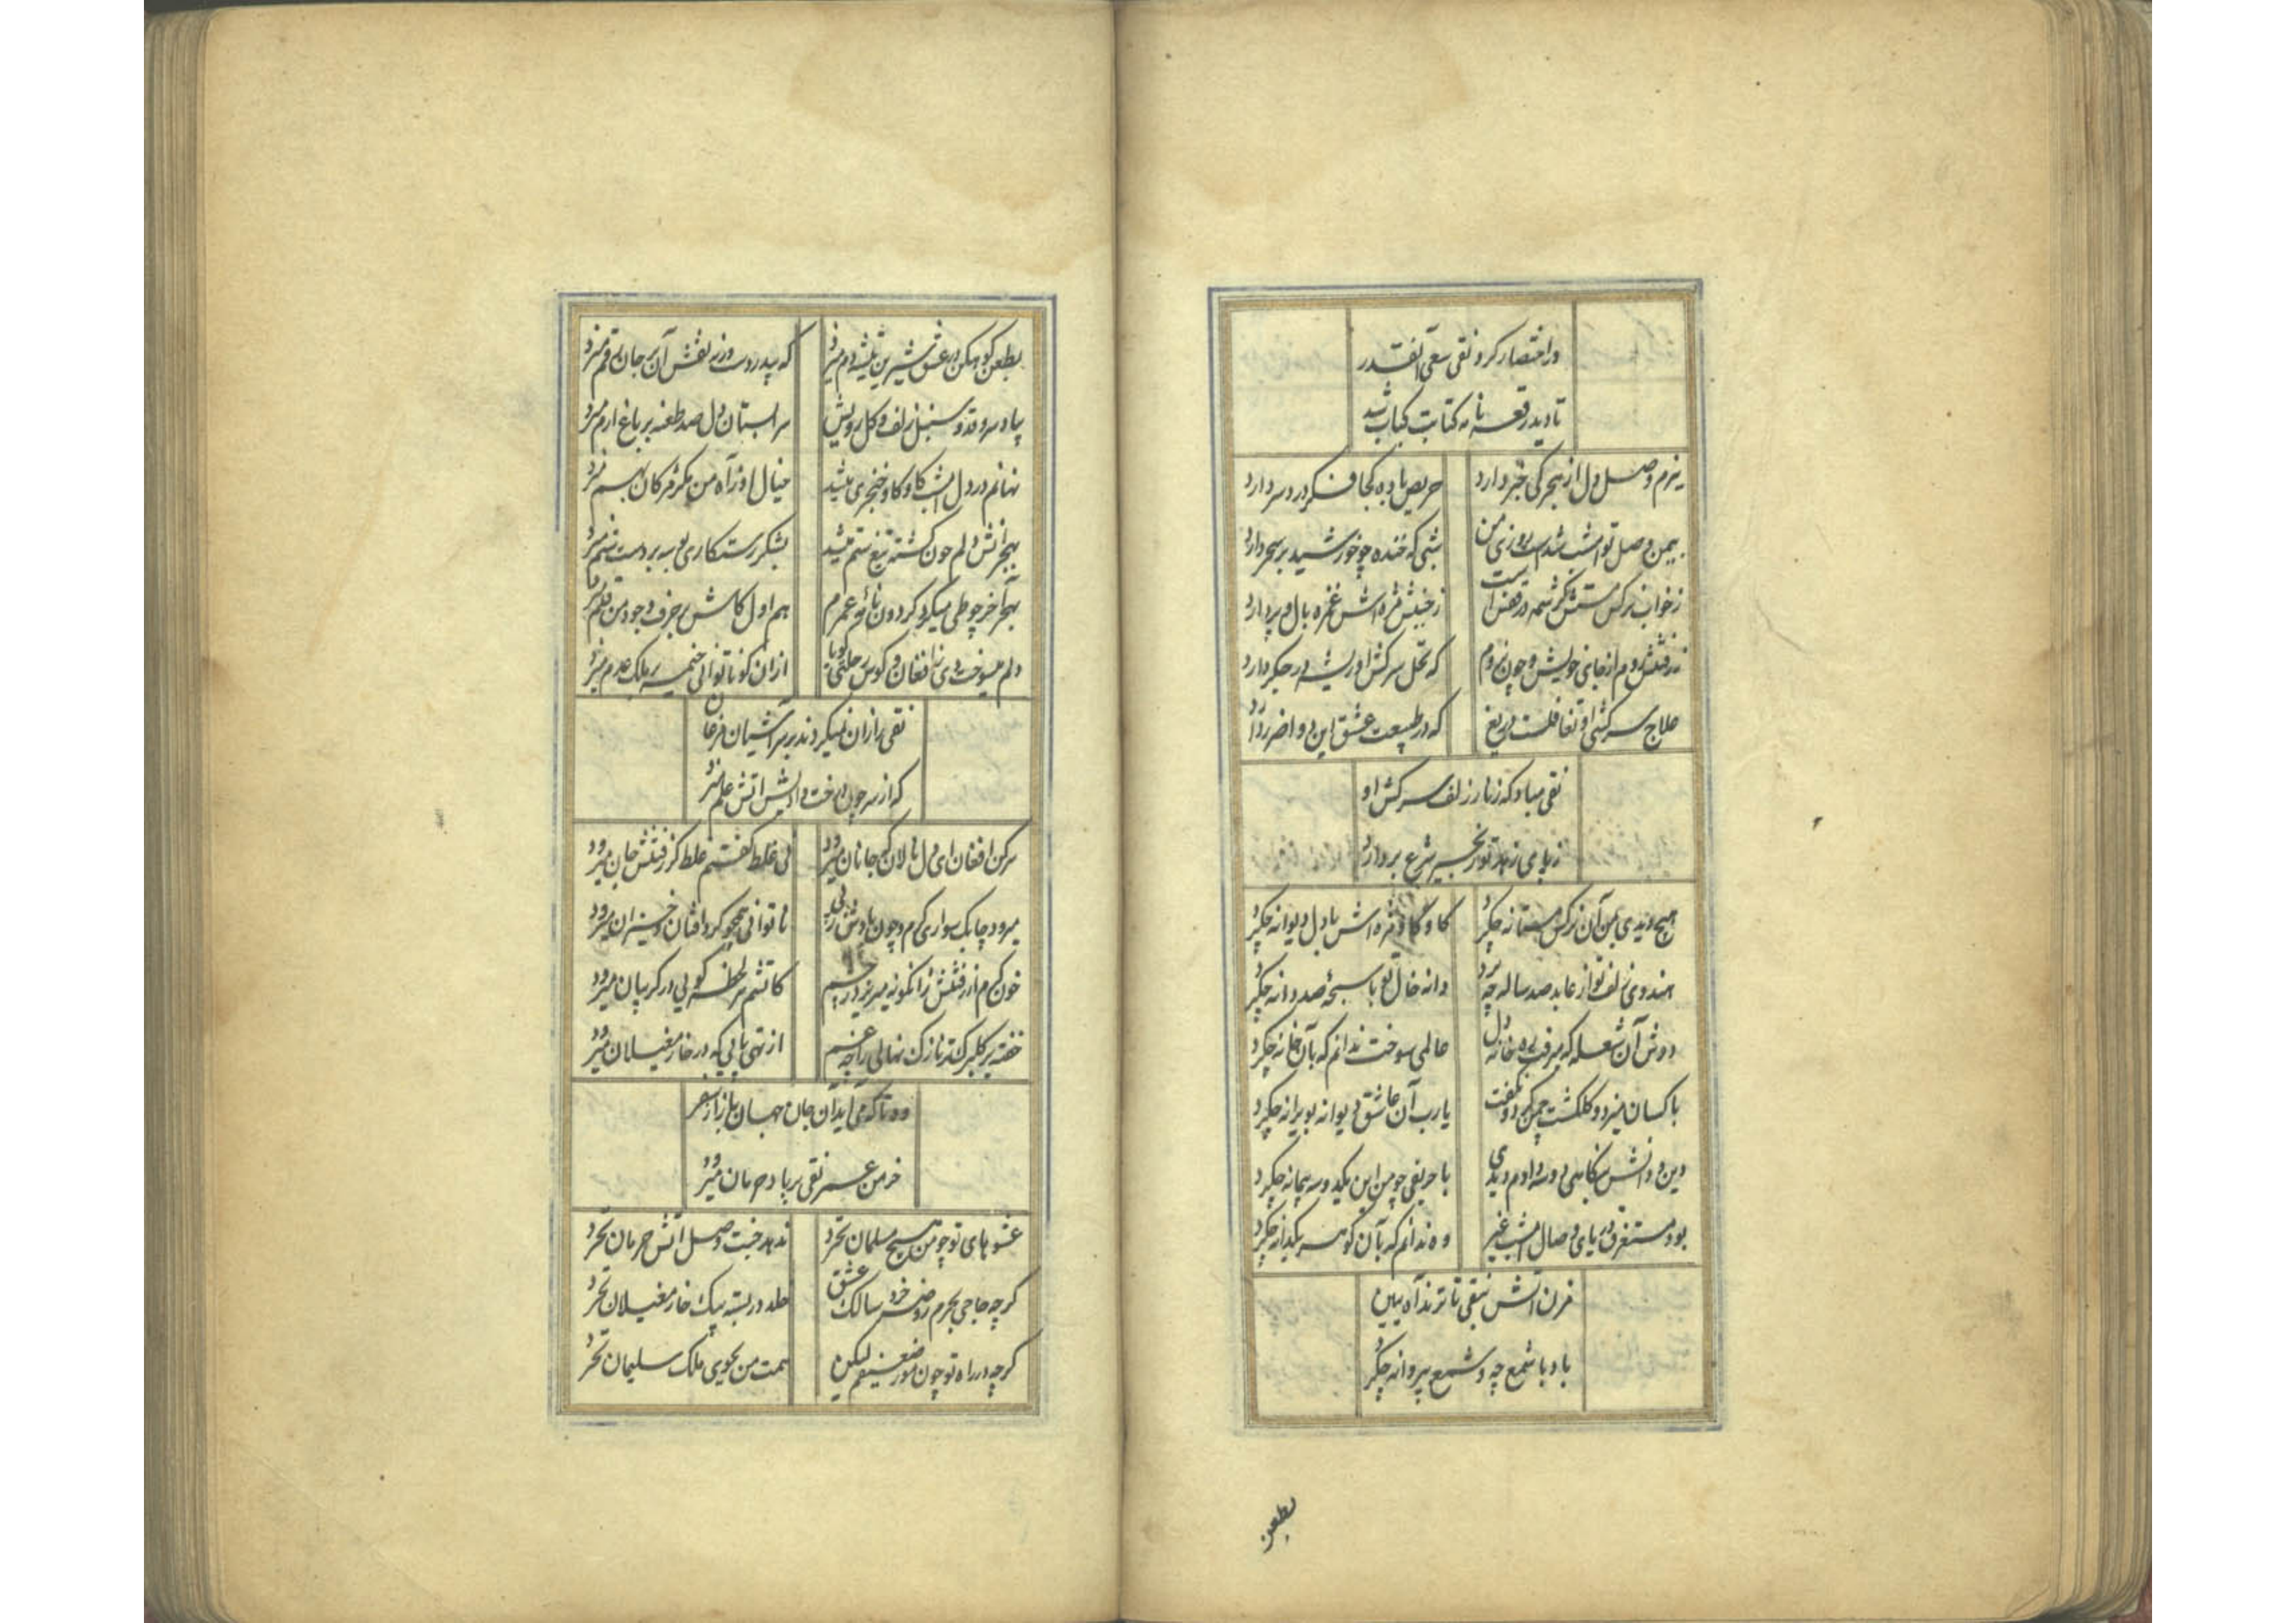 در اختصار کرد نقی سعی آنقدر
تا دید رقعه نامه کتابت کتاب شد
بزم وصل دل از هجر کی خبر دارد
حریص باده کجا فکر درد سر دارد
بیمن وصل تو امشب شدست روزی من
شبی که خنده چو خورشید بر سحر دارد
ز خواب نرکس مستش کرشمه در قفس است
ز جنبش مژه اش غمزه بال و پر دارد
ز رفتنش روم از جای خویش و چون نروم
که نخل سرکش او ریشه در جکر دارد
علاج سرکشی او تغافلست دریغ
که در طبیعت عشق این دوا ضرر دارد
نقی مباد که زنار زلف سرکش او
ز پای زهد تو زنجیر شرع بردارد
هیچ دیدی بمن آن نرکس مستانه چکرد
کاوکاو مژه اش با دل دیوانه چکرد
هندوی زلف تو از عابد صد ساله چه برد
دانه خال تو با سبحه صد دانه چکرد
دوش آن شعله که میرفت بره خانه دل
عالمی سوخت ندانم که بآن خانه چکرد
با کسان میزد و کلکشت چمن کرد و نکفت
یارب آن عاشق دیوانه بویرانه چکرد
دین و دانش بنکاهی دو سه دادم دیدی
با حریفی چو من این یکدو سه پیمانه چکرد
بود مستغرق دریای وصال امشب غیر
وه ندانم که بآن کوهر یکدانه چکرد
مزن آتش بنقی تا نزند آه ببین
باد با شمع چه و شمع بپروانه چکرد
بطعن
بطعن کوهکن در عشق شیرین تیشه دم میزد
که بیدردست وزنه نقش آن بر جان رقم میزد
بیاد سرو قد و سنبل زلف و کل رویش
سرابستان دل صد طعنه بر باغ ارم میزد
نهانم در دل امشب کاوکاو خنجری میشد
خیال او ز آه من مکر مژکان بهم میزد
بهجرانش دلم چون کشته تیغ ستم میشد
بشکر رستکاری بوسه بر دست ستم میزد
بآخر چو طی میکرد کردون نامه عمرم
هم اول کاش بر حرف وجود من قلم میزد
دلم میسوخت دی نه افغان و کوس رحلتی کویا
ازان کو ناتوانی خیمه بر ملک عدم میزد
نقی را زان نمیکردند بر سر آشیان مرغان
که از سر چون درخت وادیش آتش علم میزد
سر کن افغان ای دل نالان که جانان میرود
نی غلط کفتم غلط کز رفتنش جان میرود
میرود چابک سوار کرم و چون بادش ز پی
ناتوانی همچو کرد افتان و خیزان میرود
خون کرم از رفتنش زانکونه میریزد ز چشم
کاتشم هر لحظه کویی در کریبان میرود
خفته بر کلبرک تر نازک نهالی را چه غم
از تهی پایی که در خار مغیلان میرود
وه تا که می آید آن جان جهان باز از سفر
خرمن عمر نقی بر باد حرمان میرود
عشوهای تو چو من هیچ مسلمان نخرد
ندهد جنت وصل آتش حرمان نخرد
کرچه حاجی بحرم روضه خرد سالک عشق
خلد در بسته بیک خار مغیلان نخرد
کرچه در راه تو چون مور ضعیفم لیکن
همت من بجوی ملک سلیمان نخرد